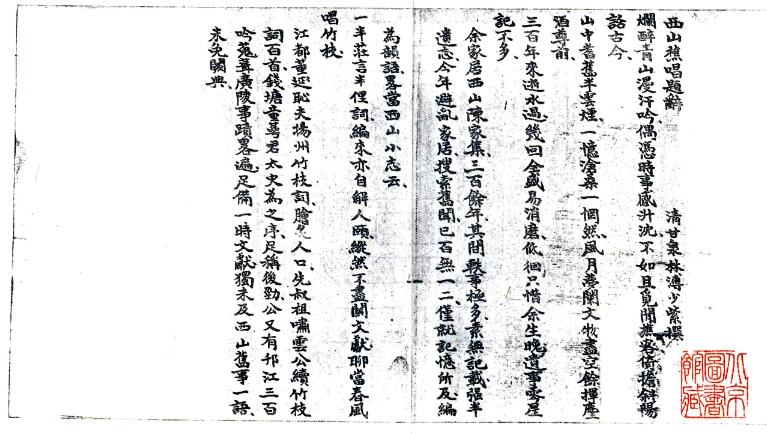 西山樵唱題辭　清甘泉林溥少紫撰
爛醉青山漫汗吟偶憑時事感升沈不如且覓閒樵客倚擔斜陽
話古今
山中耆舊半雲煙一憶滄桑一惘然風月夢闌文物盡空餘揮麈
酒尊前
三百年來逝水過幾回全盛易消磨低徊只惜余生晚遺事零星
記不多
余家居西山陳家集三百餘年其間軼事極多素無記載强半
遺忘今年避亂家居搜索舊聞已百無一二僅就記憶所及編
為韻語畧當西山小志云
一半莊言半俚詞編來亦自解人頤縱然不盡關文獻聊當春風
唱竹枝
江都董延恥夫揚州竹枝詞膾炙人口先叔祖嘯雲公續竹枝
詞百首錢塘童萼君太史為之序足稱後勁公又有邗江三百
吟蒐葺廣陵事蹟畧遍足備一時文獻獨未及西山舊事一語
未免闕典
北京
圖書
館藏